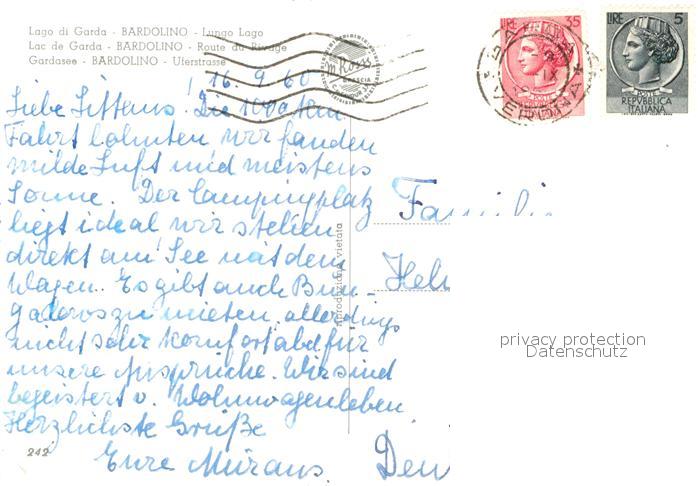 Lago di Garda - BARDOLINO - Lungo Lago
Lac de Garda - BARDOLINO - Route du Rivage
Gardasee - BARDOLINO - Uferstrasse
LIRE 35
LIRE 5
POSTE
REPVBBLICA
ITALIANA
VERONA
m. Rossi
BRESCIA
16.9.60
Liebe Littens! Die 1000 km
Fahrt lohnten wir fanden
milde Luft und meistens
Sonne. Der Campingplatz
liegt ideal wir stehen
direkt am See mit dem
Wagen. Es gibt auch Bun-
galows zu mieten, allerdings
nicht sehr komfortabel für
unsere Ansprüche. Wir sind
begeistert v. Wohnwagenleben
Herzlichste Grüße
Eure
riproduzione vietata
Famili
Hel
privacy protection
Datenschutz
242